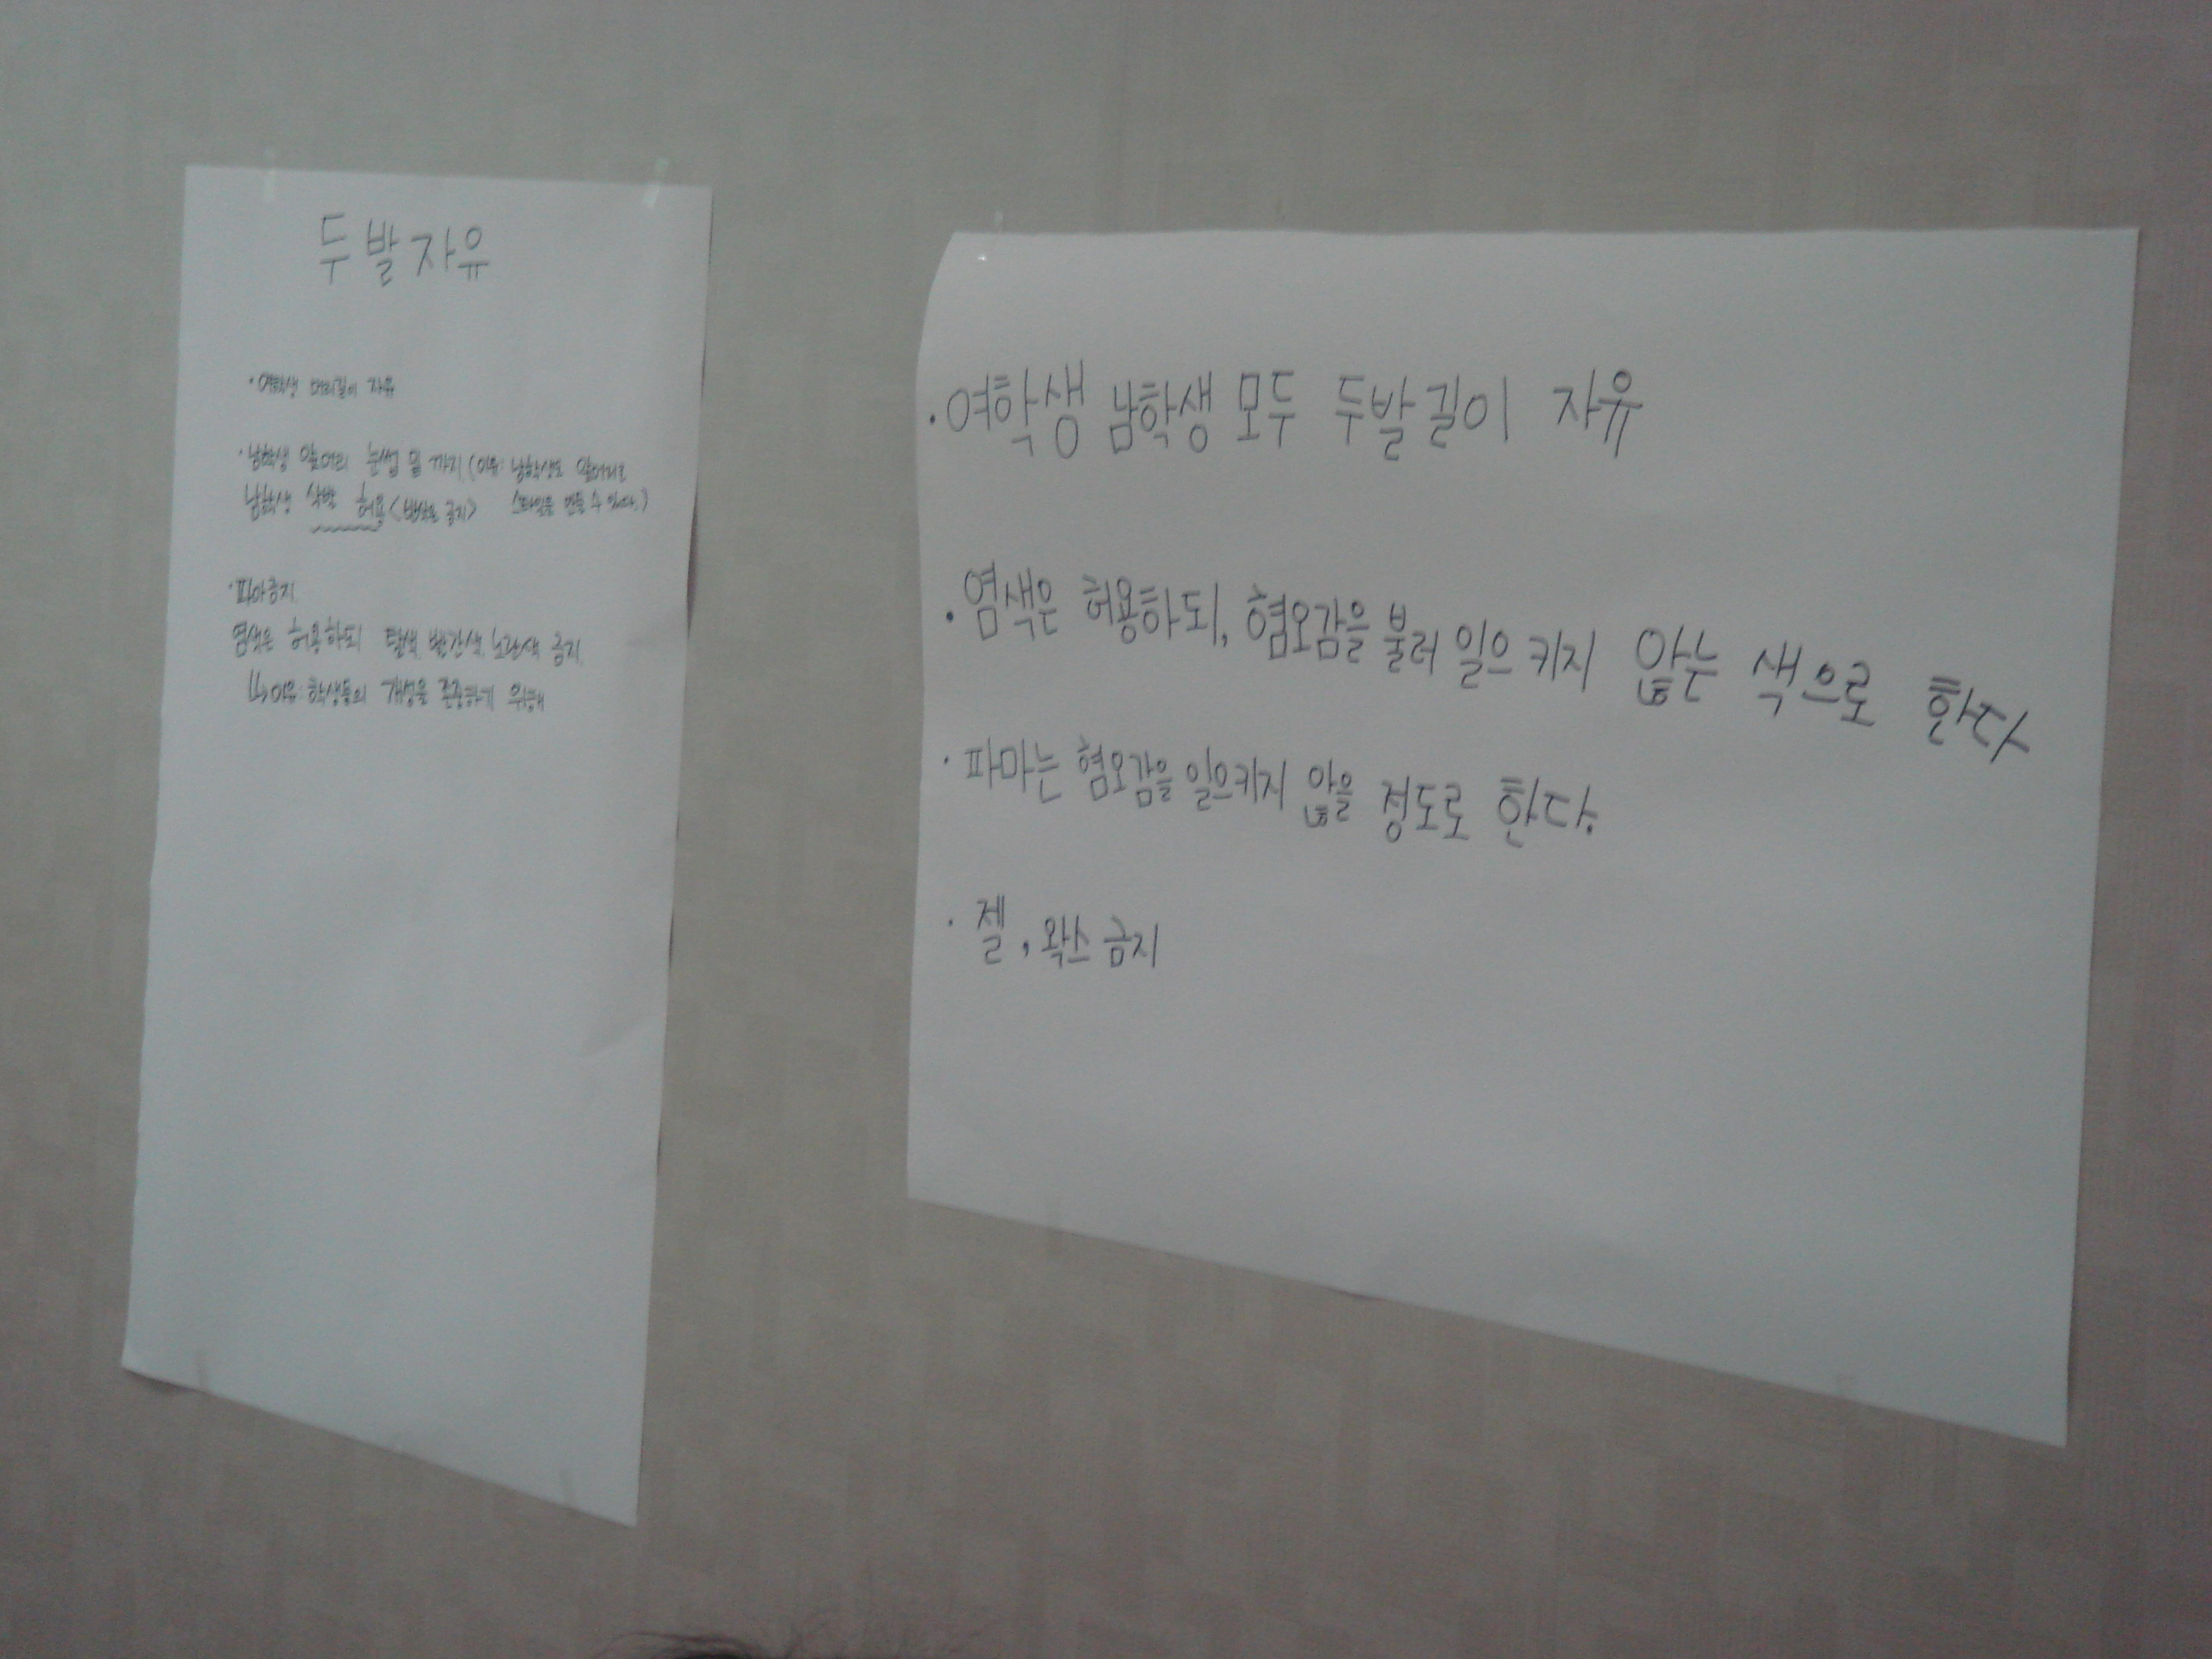 두발자유
· 여학생 머리길이 자유
· 남학생 앞머리 눈썹 밑 까지 (이유: 남학생도 앞머리로
남학생 삭발 허용 <반삭은 금지> 스타일을 만들 수 있다.)
· 파마금지
염색은 허용하되 탈색, 빨간색, 노란색 금지
↳이유: 학생들의 개성을 존중하기 위해
· 여학생 남학생 모두 두발길이 자유
· 염색은 허용하되, 혐오감을 불러 일으 키지 않는 색으로 한다
· 파마는 혐오감을 일으키지 않을 정도로 한다.
· 젤, 왁스 금지